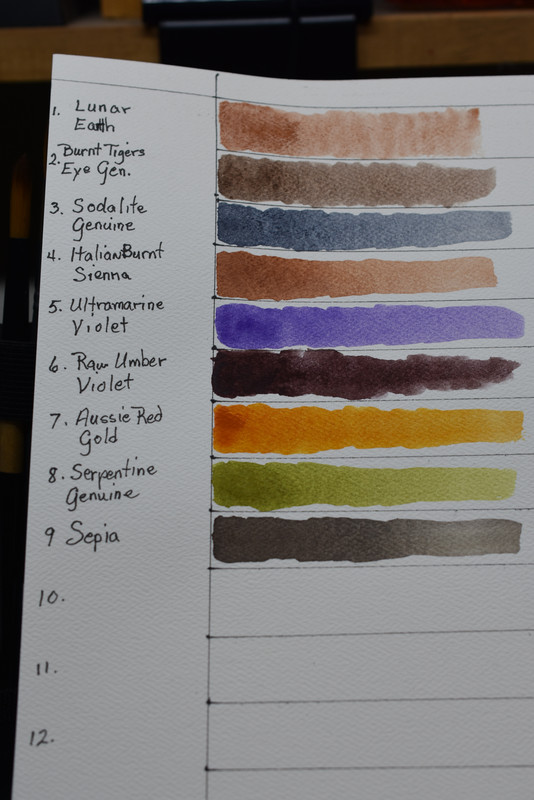 1. Lunar
Earth
2. Burnt Tigers
Eye Gen.
3. Sodalite
Genuine
4. Italian Burnt
Sienna
5. Ultramarine
Violet
6. Raw Umber
Violet
7. Aussie Red
Gold
8. Serpentine
Genuine
9 Sepia
10.
11.
12.